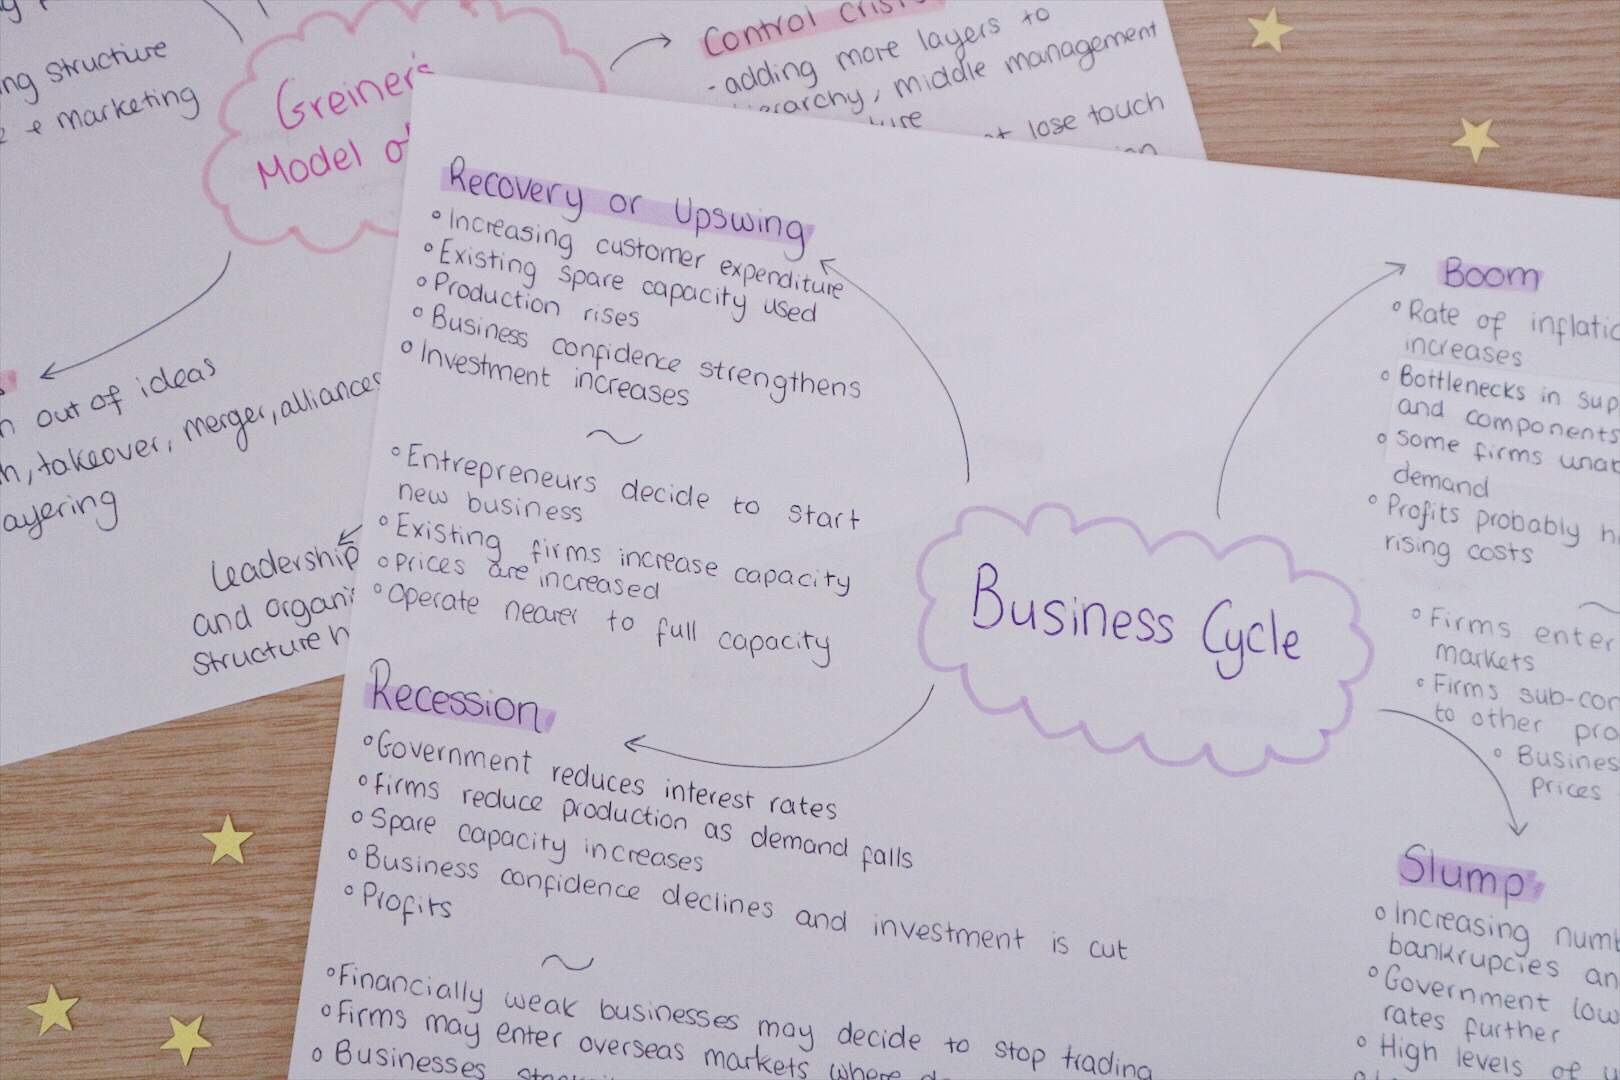 ng structure
+ marketing
Greiner's
Model of
Control
- adding more layers to
hierarchy, middle management
lose touch
out of ideas
takeover, merger, alliances
ayering
Leadership
and organi
structure
Recovery or Upswing
Increasing customer expenditure
Existing spare capacity used
Production rises
Business confidence strengthens
Investment increases
~
Entrepreneurs decide to start
new business
Existing firms increase capacity
Prices are increased
Operate nearer to full capacity
Recession
Government reduces interest rates
Firms reduce production as demand falls
Spare capacity increases
Business confidence declines and investment is cut
Profits
~
Financially weak businesses may decide to stop trading
Firms may enter overseas markets where
Businesses
Business Cycle
Boom
Rate of inflatio
increases
Bottlenecks in sup
and components
Some firms unab
demand
Profits probably hi
rising costs
~
Firms enter
markets
Firms sub-con
to other pro
Busines
prices
Slump
Increasing numb
bankrupcies an
Government low
rates further
High levels of u